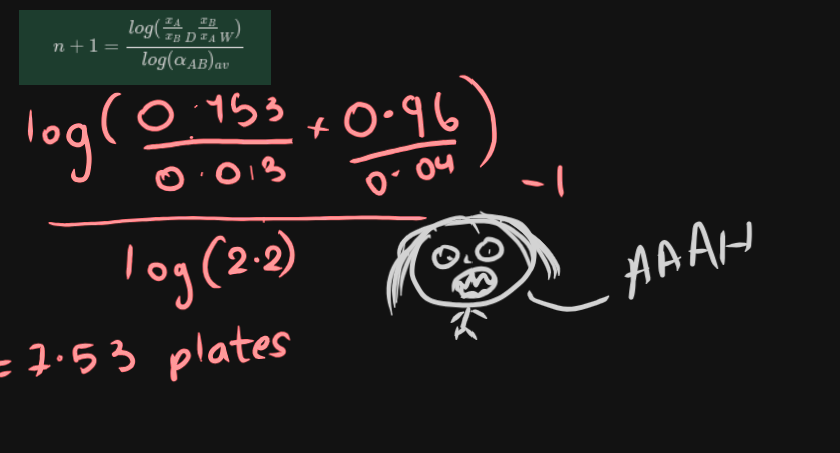 n + 1 = log(x_A/x_B D x_B/x_A W) / log(α_AB)_av
log( 0.453/0.013 + 0.96/0.04 ) - 1
log(2.2)
AAAH
= 7.53 plates